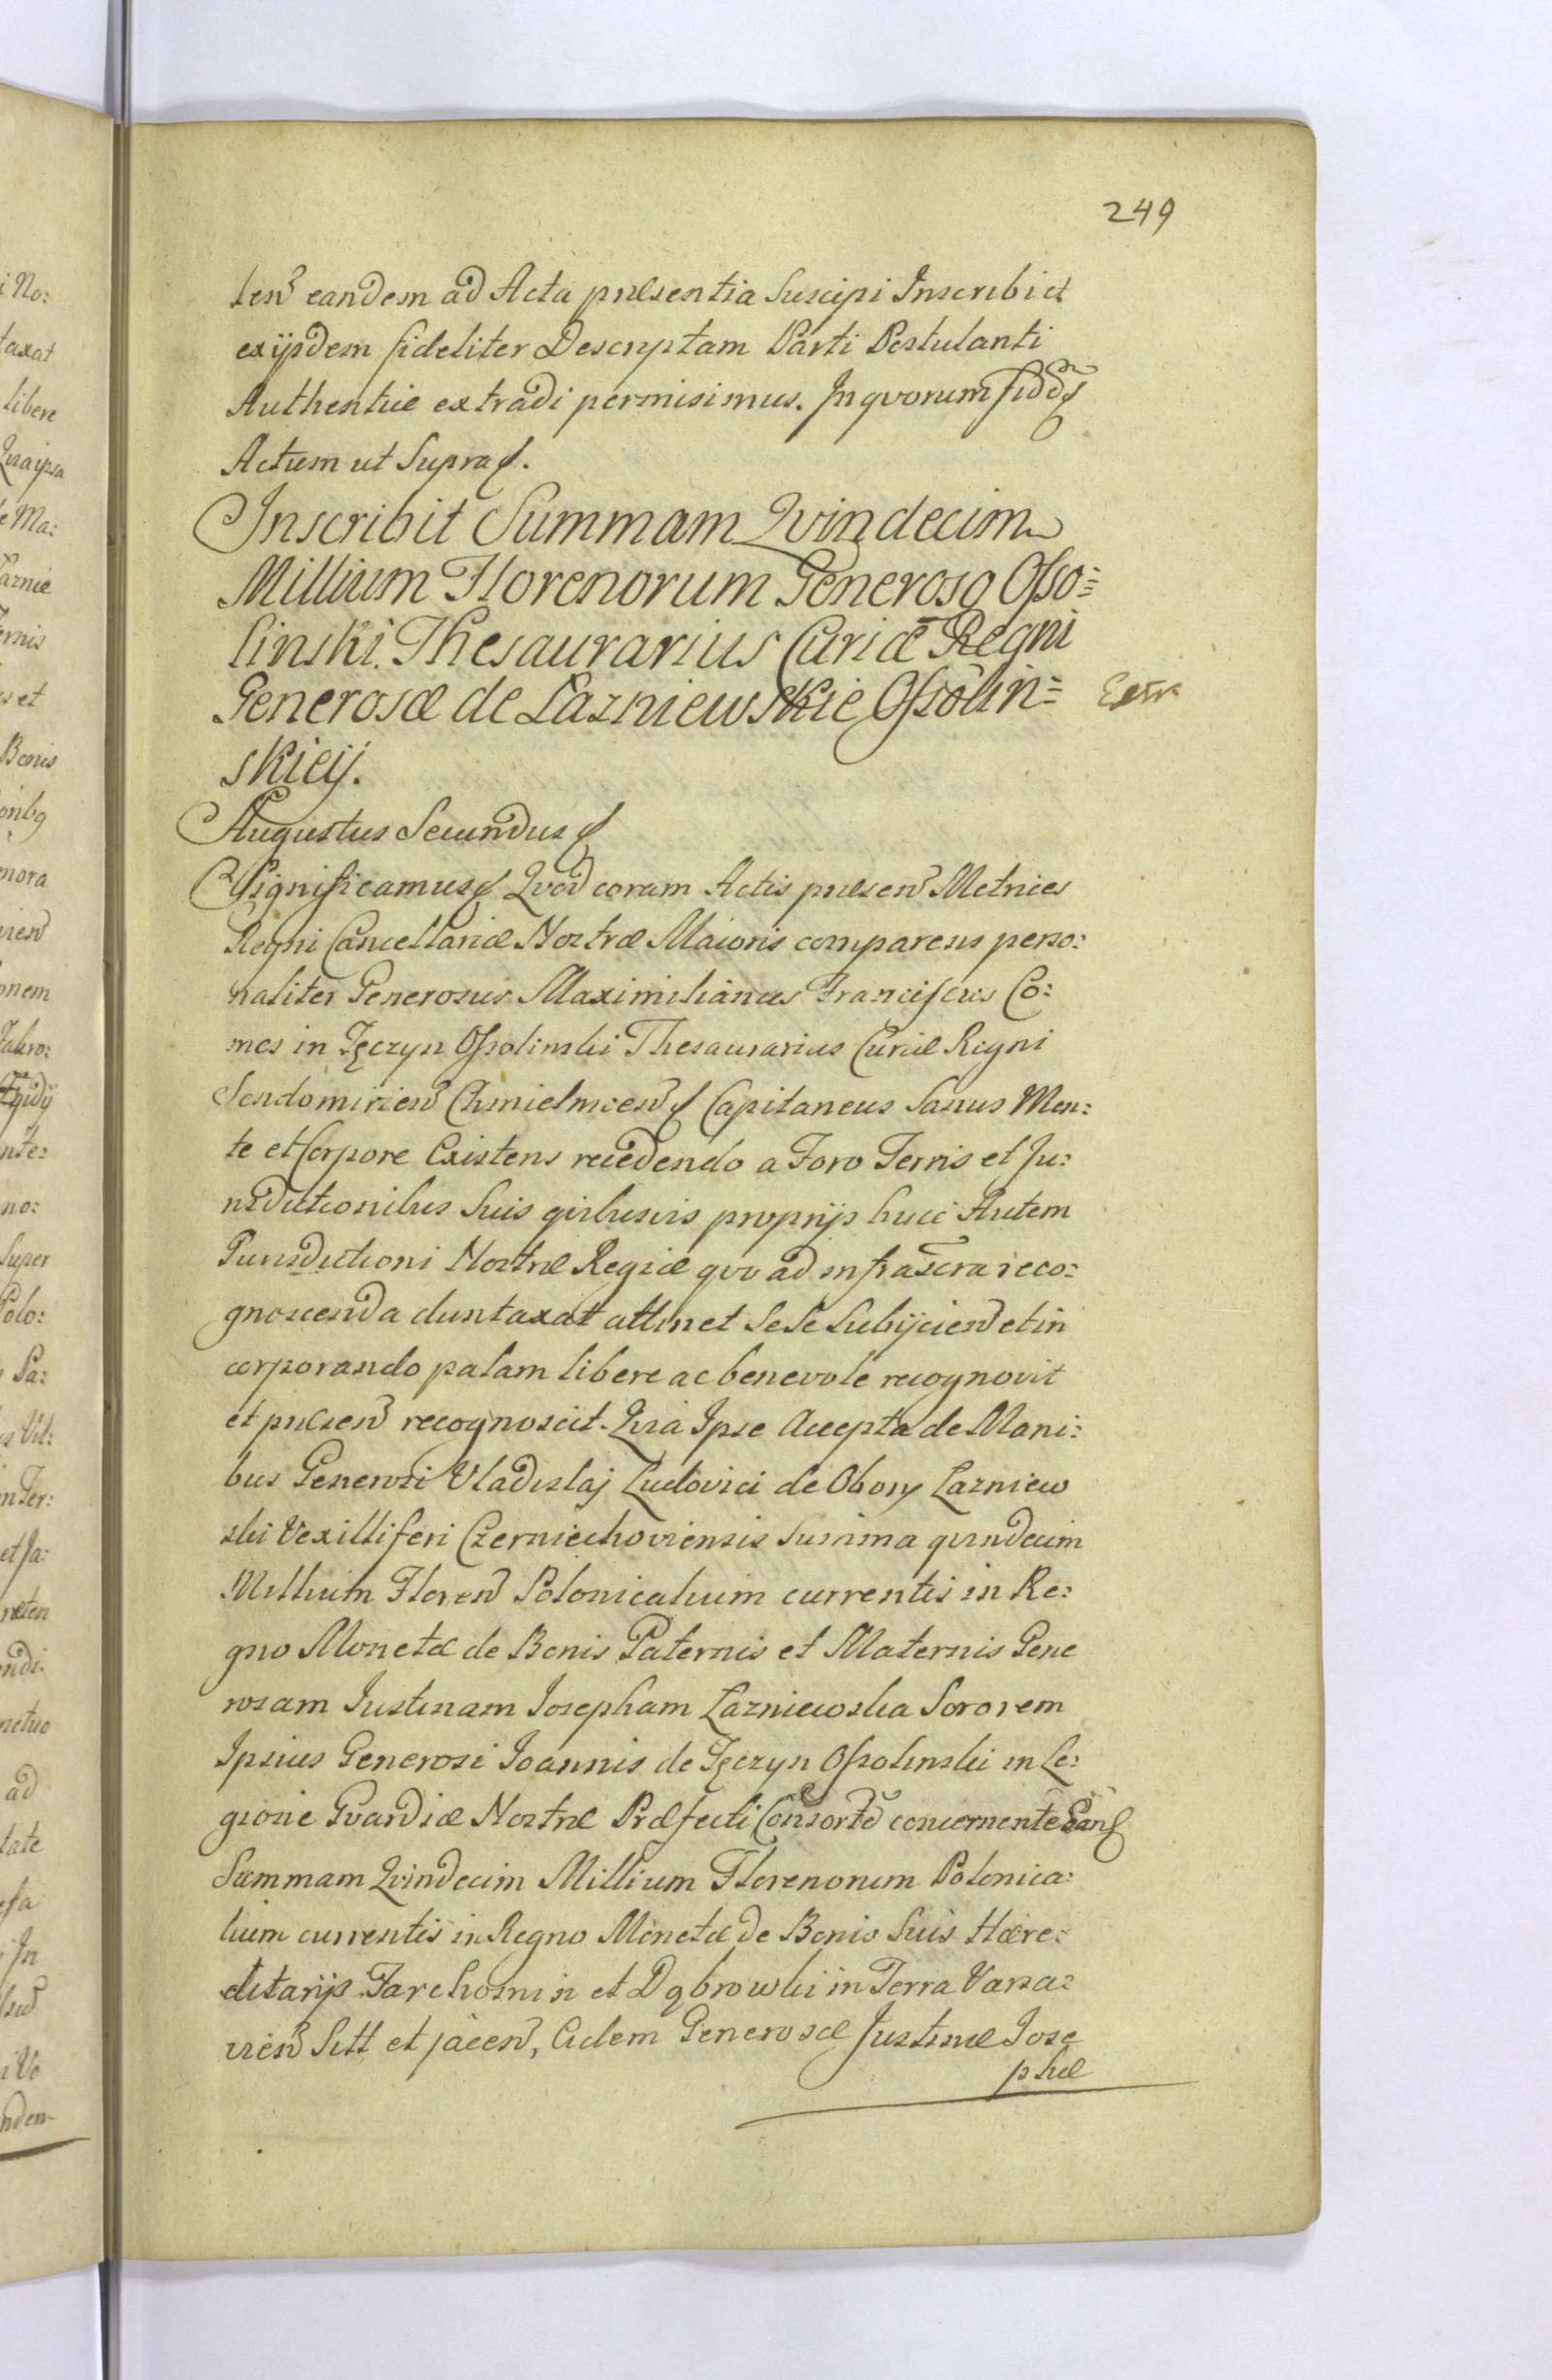 249
ten eandem ad Acta præsentia Suscipi Inscribi et
exijsdem fideliter Descryptam Parti Postulanti
Authentiæ extradi permisimus. In qvorum fid
Actum ut Supra
Inscribit Summam Qvindecim
Millium Florenorum Generoso Osso=
linski. Thesaurarius Curiæ Regni
Generosæ de Lazniewskie Ossolin=
skieij.
Extr
Augustus Secundus
Significamus Qvod coram Actis præsen Metrices
Regni Cancellariæ Nostræ Maioris comparens perso:
naliter Generosus Maximilianus Franciscus Co:
mes in Tęczyn Ossolinski Thesaurarius Curiæ Regni
Sendomirien Chmielnicen Capitaneus Sanus Men:
te et Corpore Existens recedendo a Foro Terris et Ju:
risdictionibus Suis qvibusvis proprijs huic Autem
Jurisdictioni Nostræ Regiæ qvo ad infrascra reco:
gnoscenda duntaxat attinet Sese Subijcien et in
corporando palam libere ac benevole recognovit
et præsen recognoscit. Qvia Ipse Accepta de Mani:
bus Generosi Vladislaj Ludovici de Obory Lazniew
ski Vexilliferi Czerniechoviensis Summa qvindecim
Millium Floren Polonicalium currentis in Re:
gno Monetæ de Bonis Paternis et Maternis Gene
rosam Iustinam Iosepham Lazniewska Sororem
Ipsius Generosi Ioannis de Tęczyn Ossolinski in Le:
gione Gvardiæ Nostræ Præfecti Consorte concernente Ean
Summam Qvindecim Millium Florenorum Polonica:
lium currentis in Regno Monetæ de Bonis Suis Hære:
ditarijs Tarchomin et Dąbrowki in Terra Varsa:
vien Sitt et jacen, Eidem Generosæ Justinæ Jose
phæ